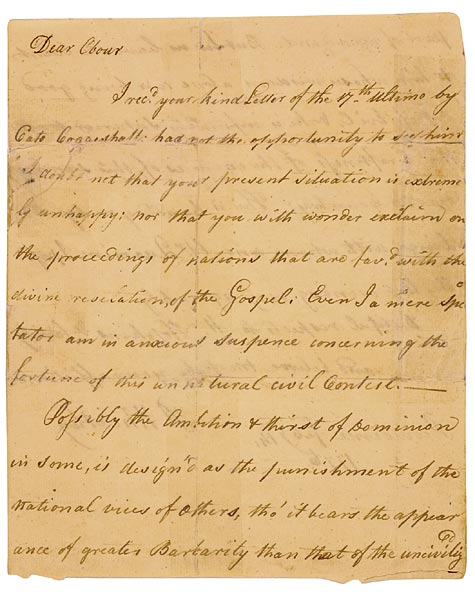 Dear Obour
I rec.d your kind Letter of the 17.th Ultimo by
Cato Coggeshall: had not the opportunity to see him
I doubt not that your present situation is extreme
ly unhappy: nor that you with wonder exclaim on
the proceedings of nations that are fav.d with the
divine revelation, of the Gospel: Even I a mere spec
tator am in anxious suspence concerning the
fortune of this unnatural civil Contest. —
Possibly the Ambition & thirst of Dominion
in some, is design'd as the punishment of the
national vices of others, tho' it bears the appear
ance of greater Barbarity than that of the unciviliz